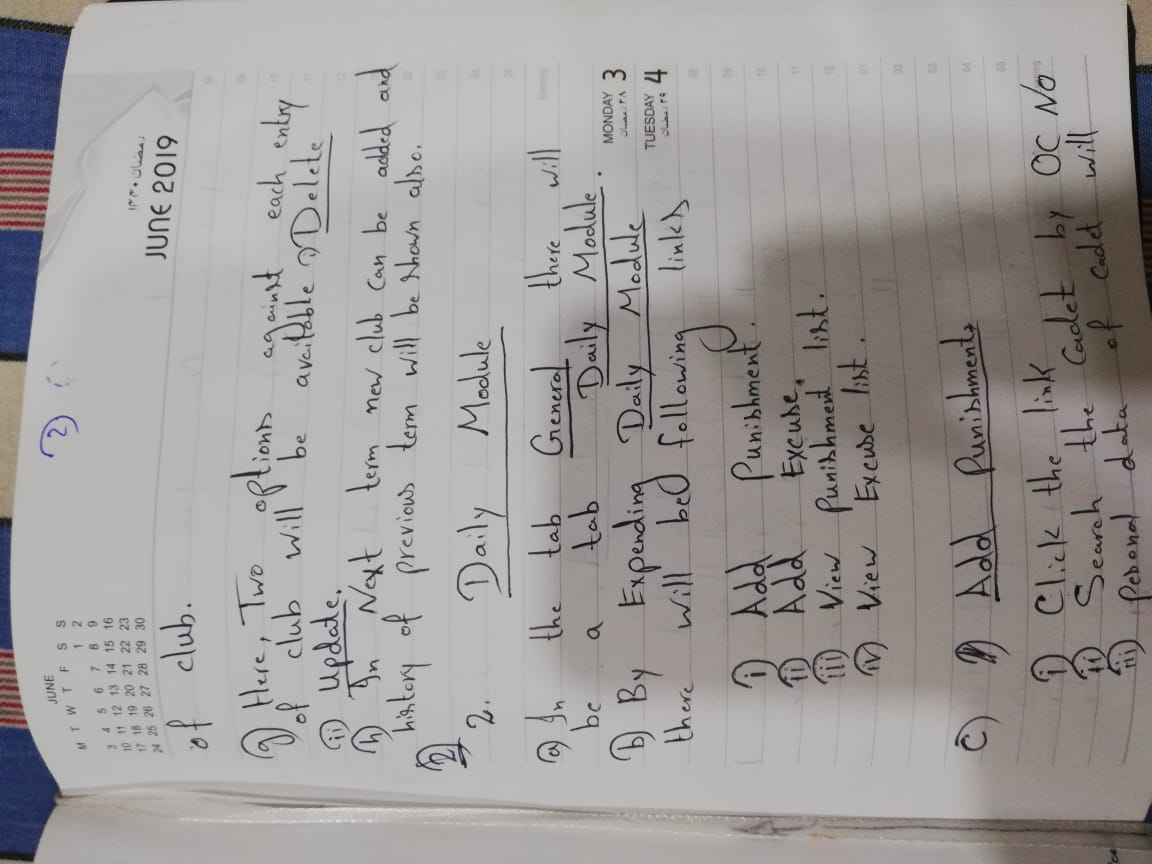 2
JUNE
M T W T F S S
1 2
3 4 5 6 7 8 9
10 11 12 13 14 15 16
17 18 19 20 21 22 23
24 25 26 27 28 29 30
رمضان ١٤٤٠
JUNE 2019
of club.
g) Here, Two options against each entry
of club will be available i) Delete
(ii) Update.
h) In Next term new club can be added and
history of previous term will be shown also.
2
2. Daily Module
a) In the tab General there will
be a tab Daily Module.
MONDAY 3
٢٨ رمضان
b) By Expending Daily Module
TUESDAY 4
٢٩ رمضان
there will be following links
i) Add Punishment.
ii) Add Excuse.
iii) View Punishment list.
iv) View Excuse list.
c) Add Punishment
i) Click the link
ii) Search the Cadet by OC No
iii) Pesonal data of cadet will